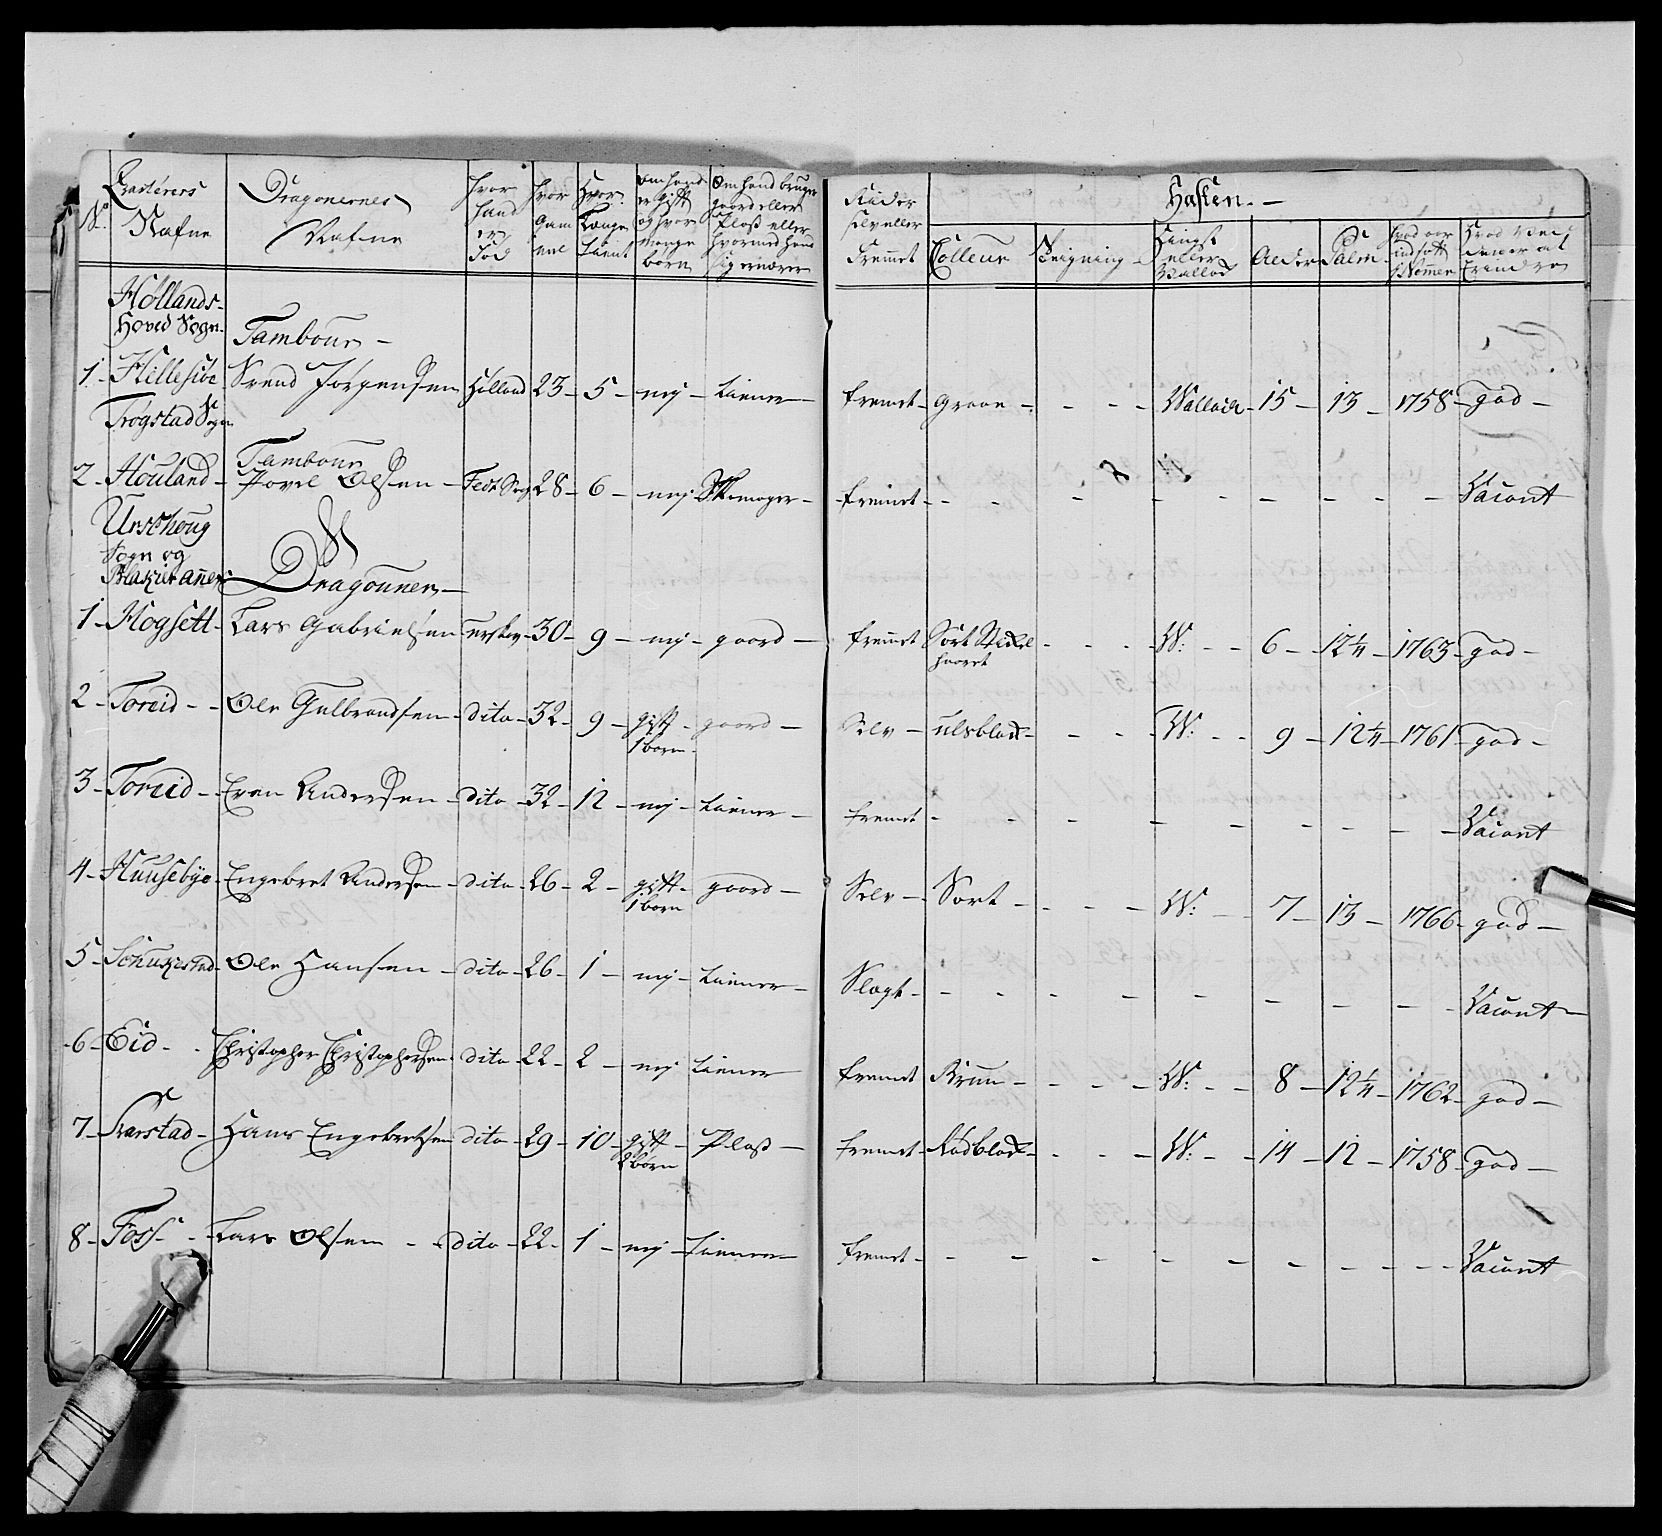 No.
Qvarterers Nafne
Dragonernes Nafne
hvor hand er Fód
hvor Gam mel
Hvor Længe tiænt
om hand er gift og hvor mange børn
Om hand bruger gaard eller Plads eller hvormed hand sig ernærer
Rider selv eller Fremmet
Hæsten. -
Colleur
Teigning
Hingst eller Wallack
Alder
Palm
hvad aar indsatt i Nommer
Hvad Viidere at Erindre
Hóllands-
Hoved Sogn.
Tambour -
1 - Hillesióe Svend Jórgensen Hólland 23 - 5 - nej - tiener - fremt - graae - - - - Wallack - 15 - 13 - 1758 - god -
Trógstad Sogn
Tambour
2 - Houland - Povel Olsen - Fedt Sogn 28 - 6 - nej - Skomager - fremet - - - - - - - - - Vacant
Urschoug
Sogn og
Blakier anex
Dragouner -
1 - Hogsett - Lars Gabrielsen urskov - 30 - 9 - nej - gaard - fremet Sort Stickel haaret - - - W: - - 6 - 12¼ - 1763 - god -
2 - Toreid - - Ole Gulbrandsen - dito - 32 - 9 - gift 1 born - gaard - Selv - ulsblak - - - W: - - 9 - 12¼ - 1761 - god -
3 - Toreid - - Even Andersen - dito - 32 - 12 - nej - tiener - fremet - - - - - - - - - Vacant
4 - Huusebye - Engebret Andersen - dito - 26 - 2 - gift - 1 born gaard - Selv - Sort - - - - W: - 7 - 13 - 1766 - god -
5 - Ole Hansen - dito - 26 - 1 - nej - tiener - Slagt - - - - - - - - - Vacant -
6 - Eid - - Christopher Christophersen dito - 22 - 2 - nej tiener fremet Brun - - - - W: - - 8 - 12¼ - 1762 - god -
7 - Karstad - Hans Engebretsen dito - 29 - 10 - gift - 2 børn Plads - fremet - Rødblak - - - - W: - - 14 - 12 - 1758 - god -
8 - Foss - - Lars Olsen - - dito - 22 - 1 - nej - tiener - fremet - - - - - - - - - Vacant